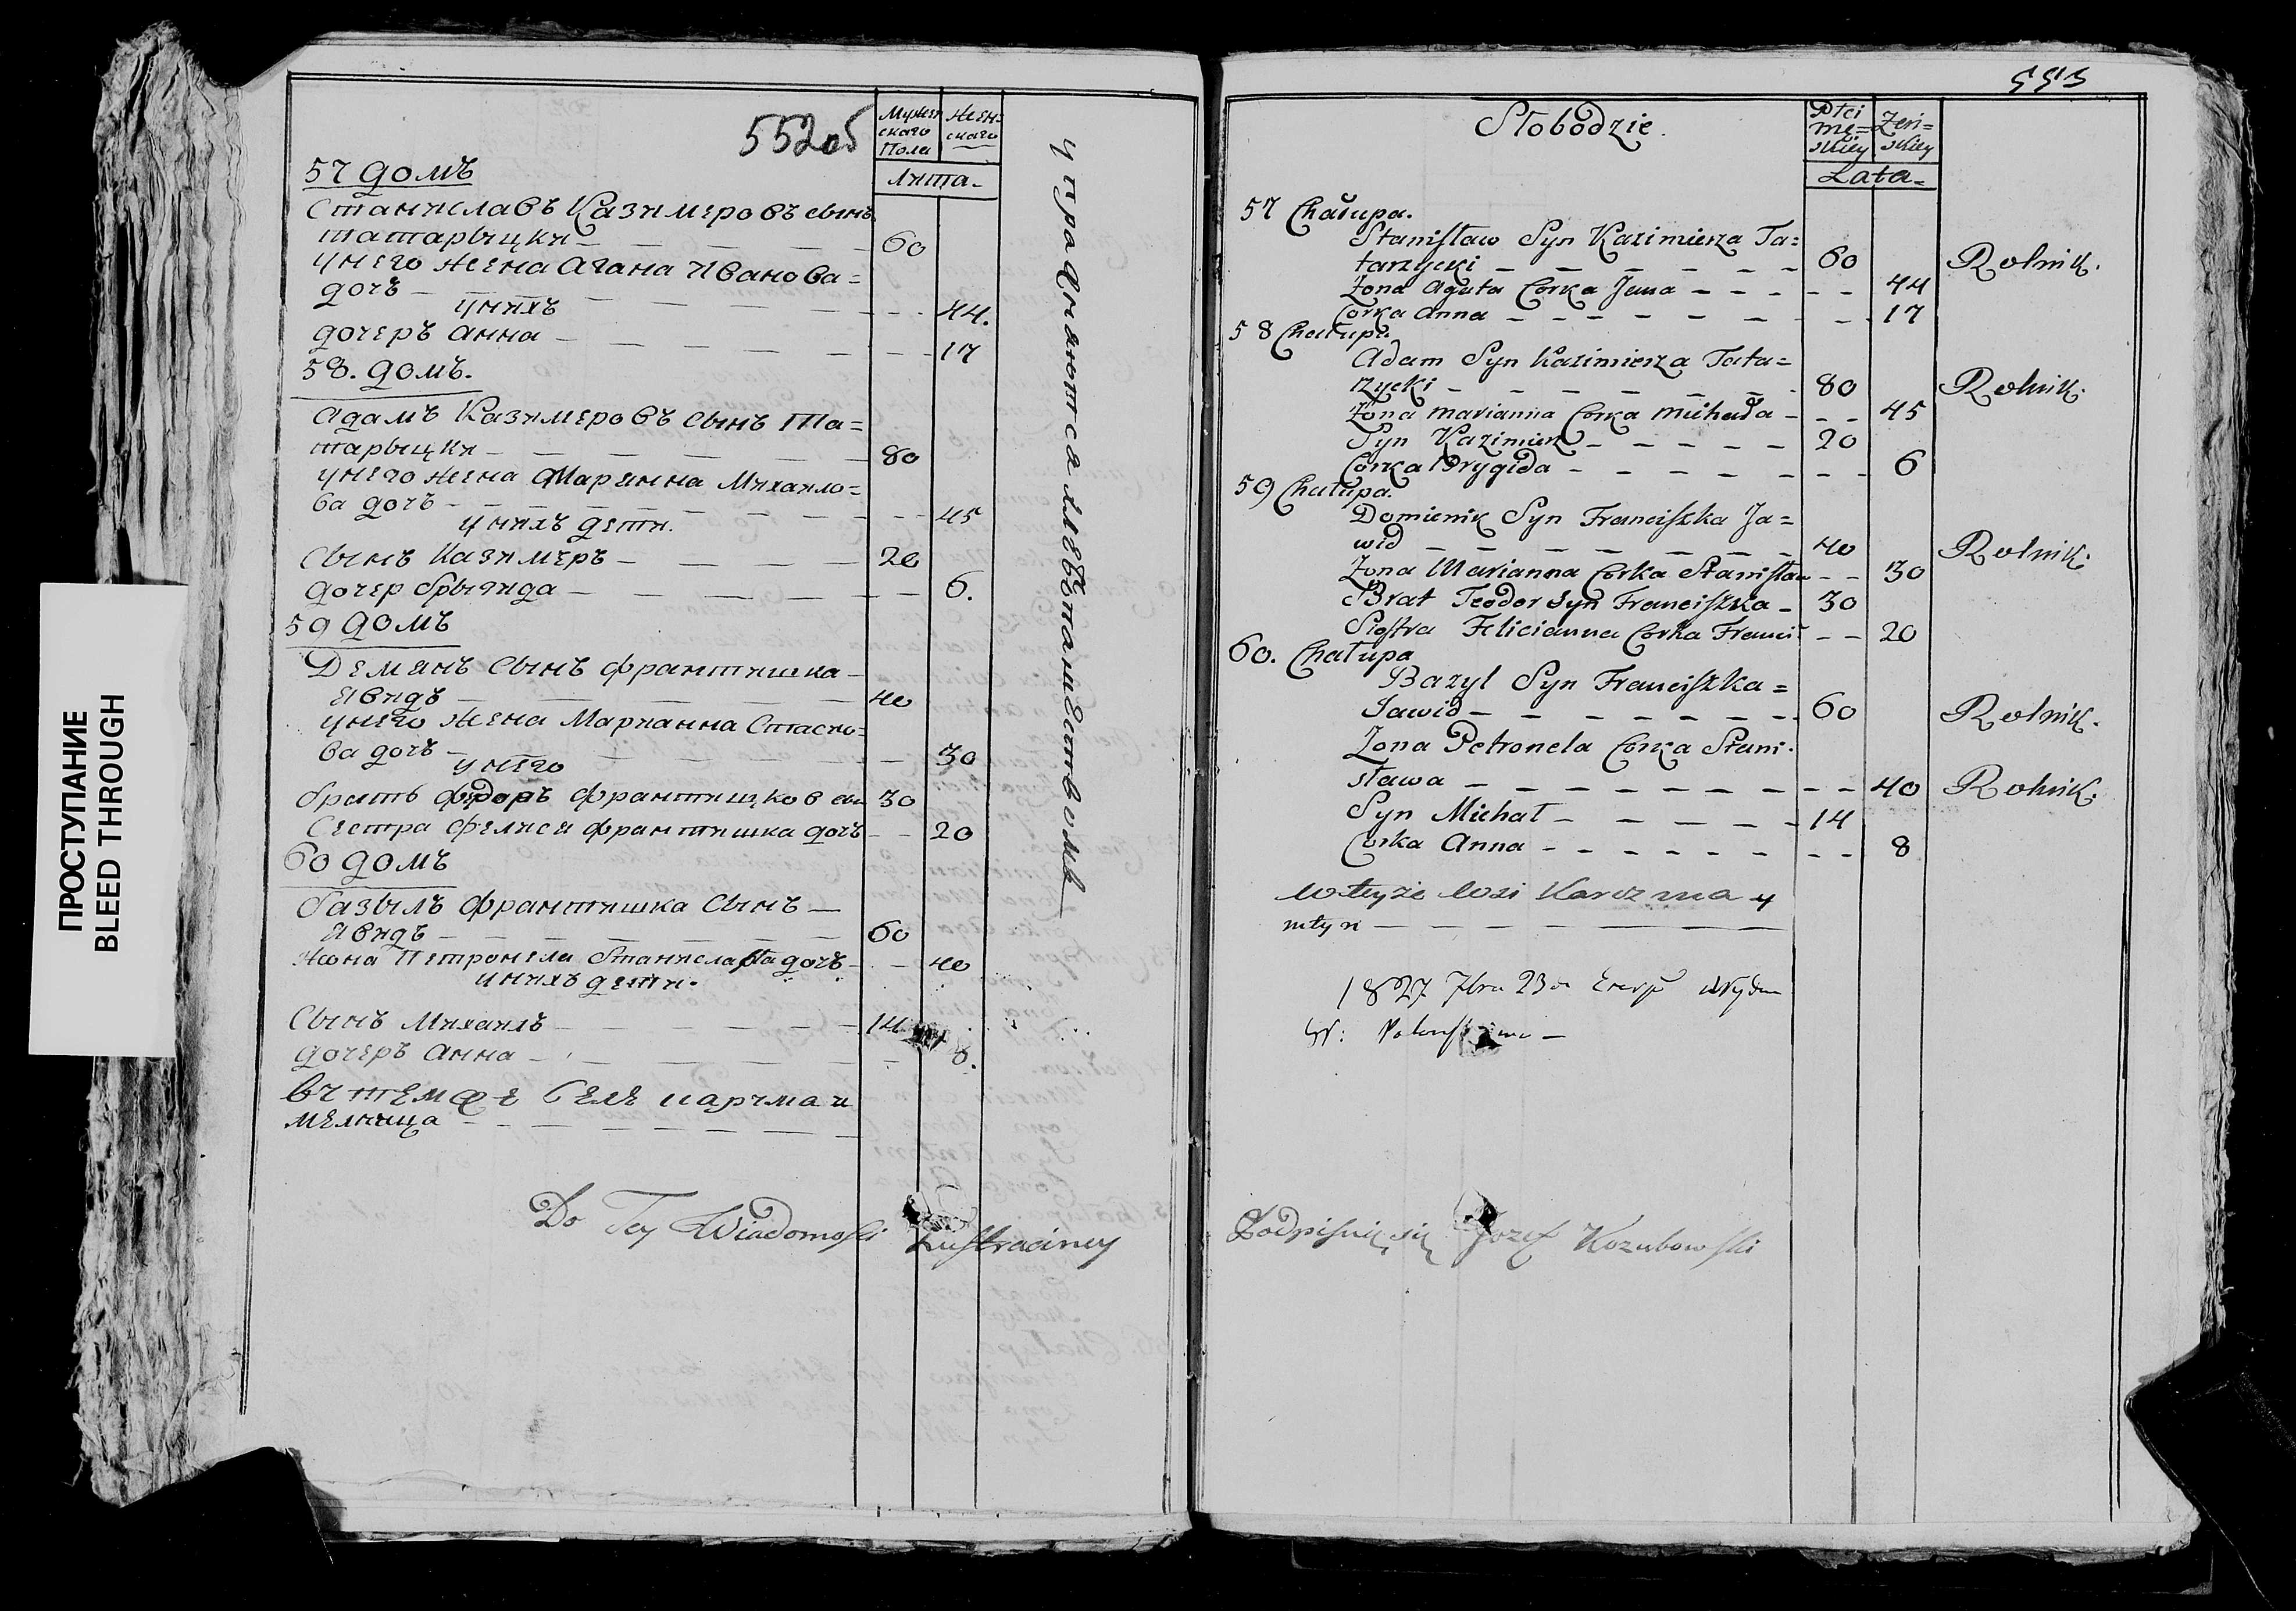 ПРОСТУПАНИЕ
BLEED THROUGH
552об
Мужескаго Пола
Женскаго
Лѣта
57 домъ
Станиславъ Казимеровъ сынъ
татарыцки — 60
у него жена Агата Иванова=
дочь — 44.
у нихъ
дочеръ Анна — 17
58. домъ.
Адамъ Казимеровъ сынъ Та=
тарыцки — 80
у него жена Марянна Михайло=
ва дочь — 45
у нихъ дети.
сынъ Казимеръ — 20
дочер Брыгида — 6.
59 домъ
Демянъ сынъ франтишка
Явидъ — 40
у него жена Марианна Стасио=
ва дочь — 30
у него
братъ федоръ франтишков сы 30
Сестра Фелися франтишка дочь 20
60 домъ
базыль франтишка сынъ —
Явидъ — 60
жона Петронеля Станислава дочь — 40
у нихъ дети.
Сынъ Михаилъ — 14
дочеръ Анна — 8.
въ темже селе карчма и
мелница
упражняются хлебопашествомъ
Do Tey Wiadomosci Lustraciney
553
Słobodzie.
Płci męskiey
Żeńskiey
Lata
57 Chałupa.
Stanisław Syn Kazimierza Ta=
tarzycki — 60 Rolnik.
Żona Agata Corka Jana — 44
Corka Anna — 17
58 Chałupa.
Adam Syn Kazimierza Tata=
rzycki — 80 Rolnik.
Żona Marianna Corka Michała — 45
Syn Kazimierz — 20
Corka Brygida — 6
59 Chałupa.
Domienik Syn Franciszka Ja=
wid — 40 Rolnik.
Żona Marianna Corka Stanisław — 30
Brat Teodor Syn Franciszka — 30
Siostra Felicianna Corka Franci — 20
60. Chałupa
Bazyl Syn Franciszka =
Jawid — 60 Rolnik.
Żona Petronela Corka Stani=
sława — 40 Rolnik.
Syn Michał — 14
Corka Anna — 8
w teyże wsi Karczma y
młyn —
1827 7bra 23
Podpisuię się Jozef Kozubowski